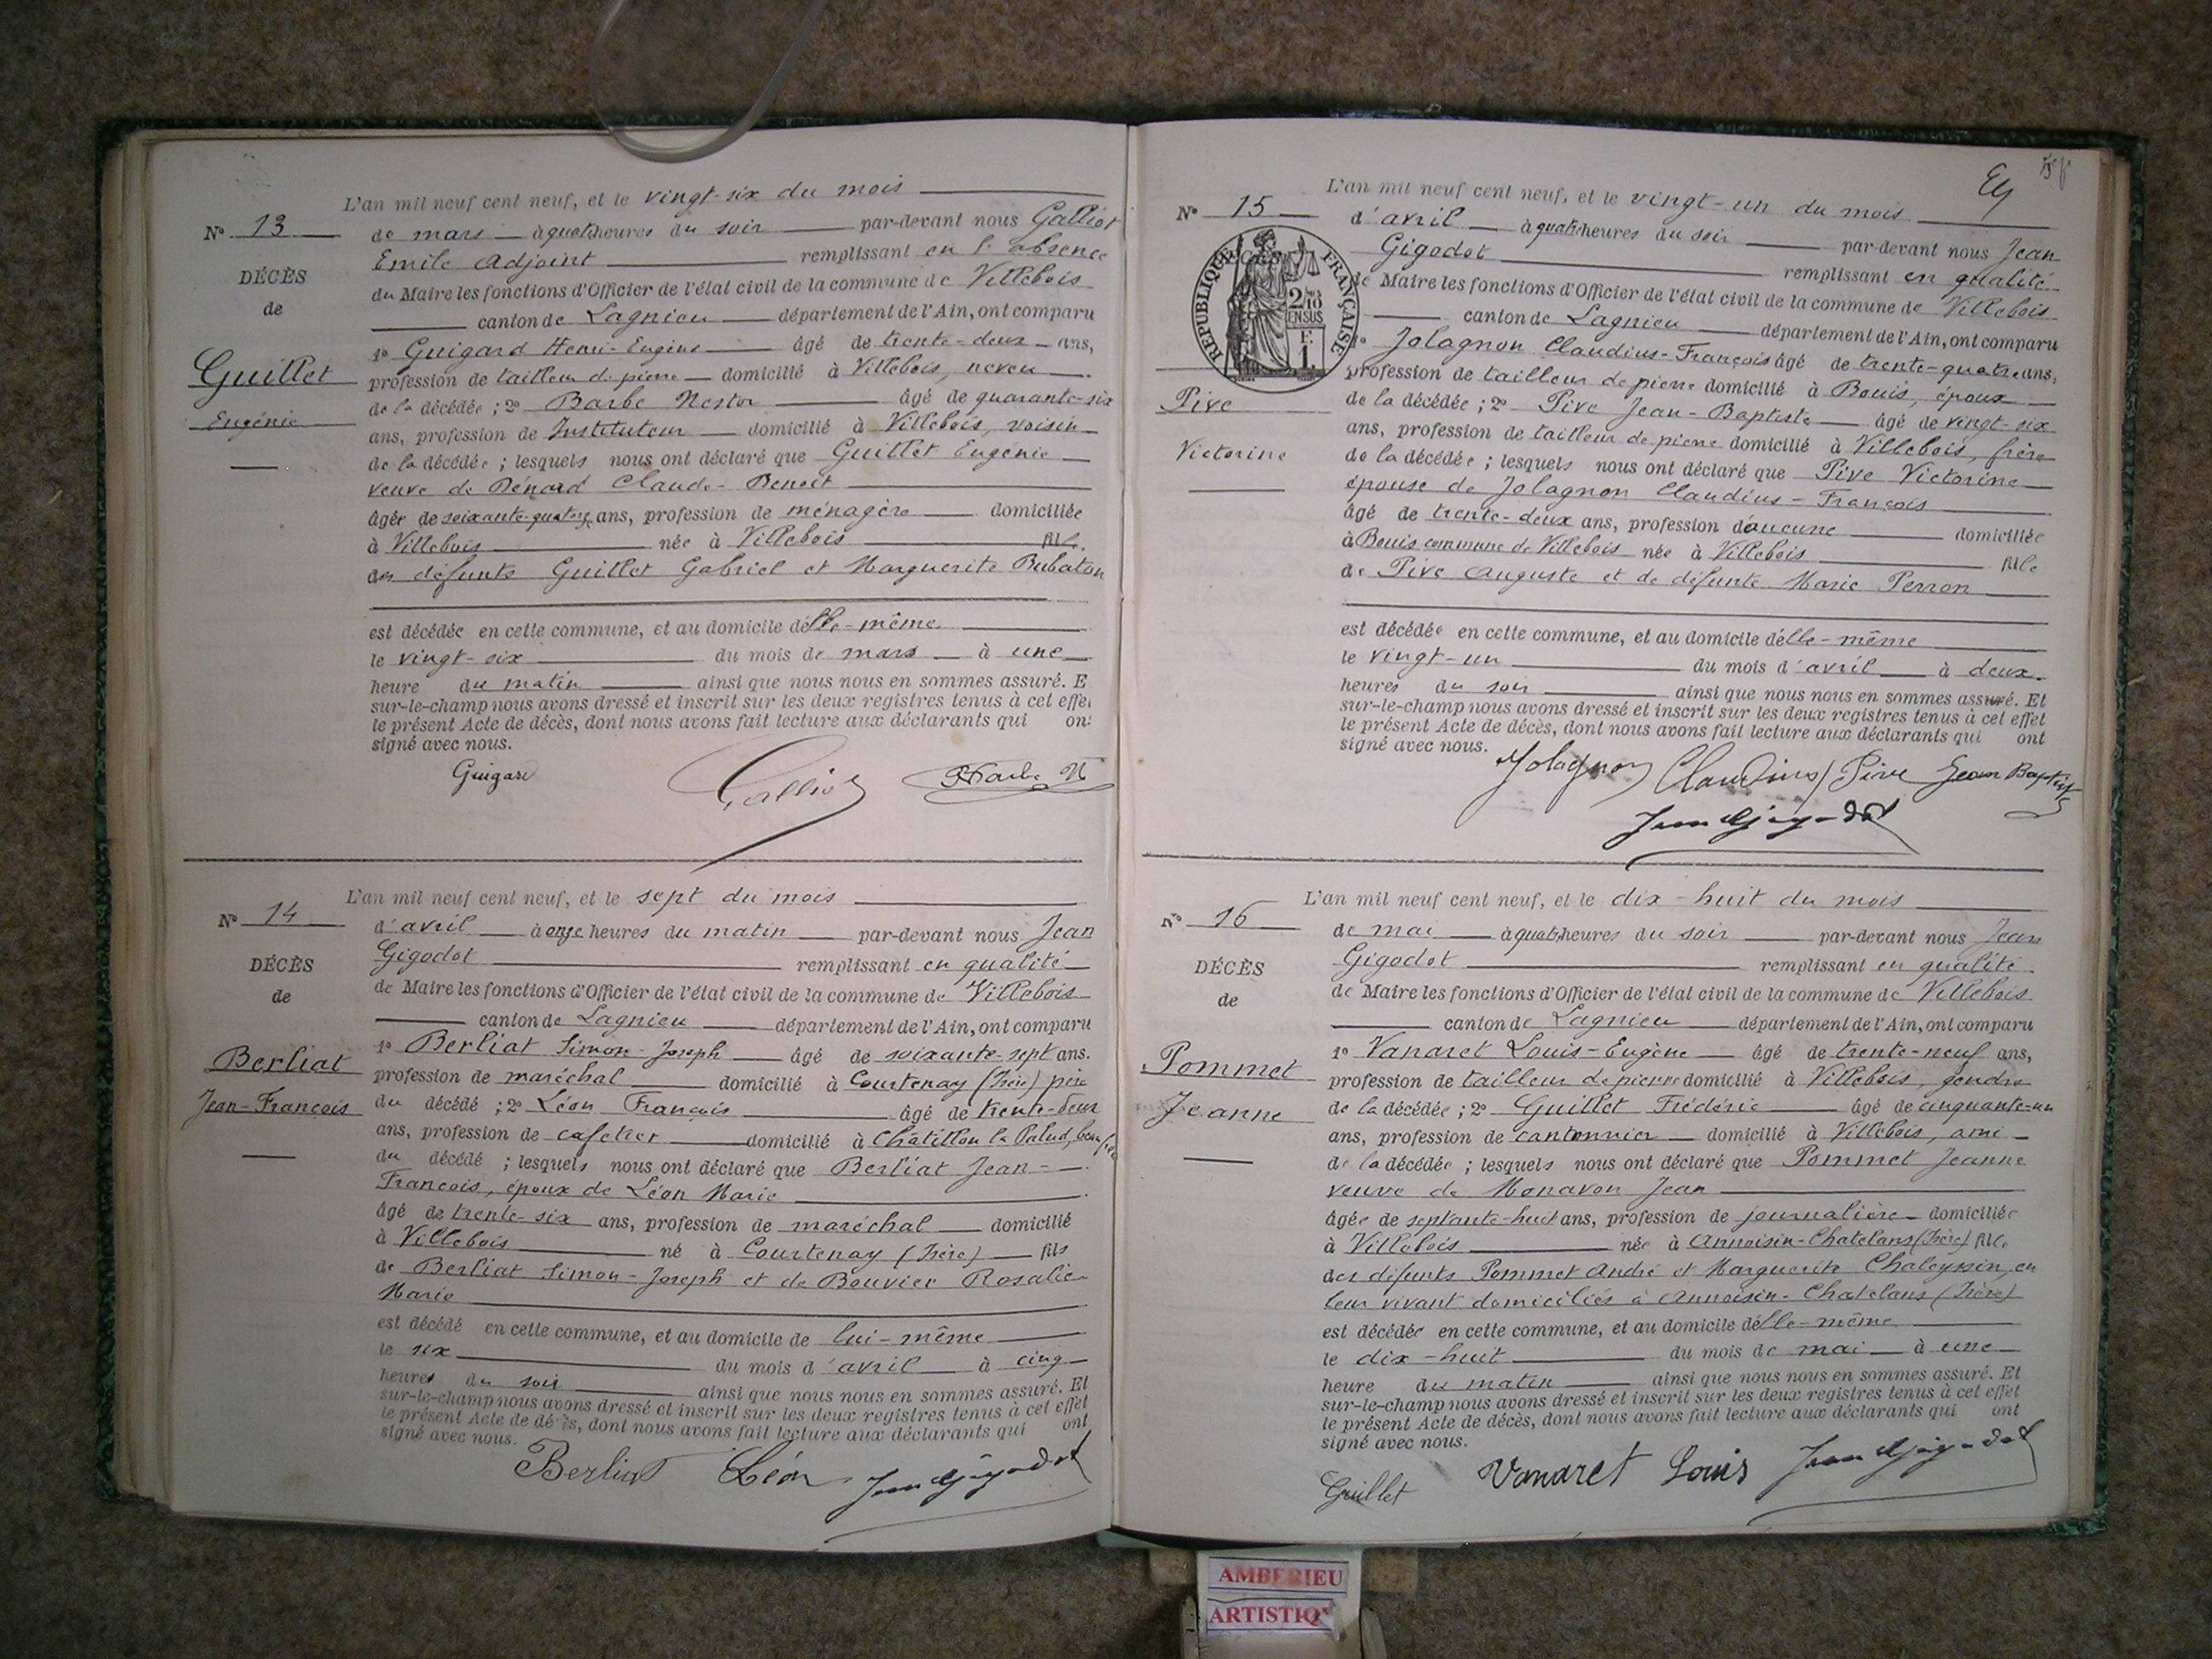 L'an mil neuf cent neuf, et le vingt-six du mois
N° 13
de mars à quatre heures du soir par-devant nous Galliot
Emile Adjoint remplissant en l'absence
DÉCÈS
du Maire les fonctions d'Officier de l'état civil de la commune de Villebois
de
canton de Lagnieu département de l'Ain, ont comparu
1° Guigard Henri-Eugène âgé de trente-deux ans,
Guillet
profession de tailleur de pierre domicilié à Villebois, neveu
de la décédée ; 2° Barbe Nestor âgé de quarante-six
Eugénie
ans, profession de Instituteur domicilié à Villebois, voisin
de la décédée ; lesquels nous ont déclaré que Guillet Eugénie
veuve de Bénard Claude-Benoit
âgée de soixante-quatorze ans, profession de ménagère domiciliée
à Villebois née à Villebois fille
des défunts Guillet Gabriel et Marguerite Rubaton
est décédée en cette commune, et au domicile d'elle-même
le vingt-six du mois de mars à une
heure du matin ainsi que nous nous en sommes assuré. E
sur-le-champ nous avons dressé et inscrit sur les deux registres tenus à cet effet
le présent Acte de décès, dont nous avons fait lecture aux déclarants qui ont
signé avec nous.
Guigard Galliot Barbe N
L'an mil neuf cent neuf, et le sept du mois
N° 14
d'avril à onze heures du matin par-devant nous Jean
Gigodot remplissant en qualité
DÉCÈS
de Maire les fonctions d'Officier de l'état civil de la commune de Villebois
de
canton de Lagnieu département de l'Ain, ont comparu
1° Berliat Simon-Joseph âgé de soixante-sept ans.
Berliat
profession de maréchal domicilié à Courtenay (Isère) père
Jean-François
du décédé ; 2° Léon François âgé de trente-deux
ans, profession de cafetier domicilié à Châtillon la Palud, beau-frère
du décédé ; lesquels nous ont déclaré que Berliat Jean-
François, époux de Léon Marie
âgé de trente-six ans, profession de maréchal domicilié
à Villebois né à Courtenay (Isère) fils
de Berliat Simon-Joseph et de Bouvier Rosalie
Marie
est décédé en cette commune, et au domicile de lui-même
le six du mois d'avril à cinq
heures du soir ainsi que nous nous en sommes assuré. Et
sur-le-champ nous avons dressé et inscrit sur les deux registres tenus à cet effet
le présent Acte de décès, dont nous avons fait lecture aux déclarants qui ont
signé avec nous.
Berliat Léon Jean Gigodot
L'an mil neuf cent neuf, et le vingt-un du mois
N° 15
d'avril à quatre heures du soir par-devant nous Jean
Gigodot remplissant en qualité
RÉPUBLIQUE FRANÇAISE
de Maire les fonctions d'Officier de l'état civil de la commune de Villebois
2/10 EN SUS
canton de Lagnieu département de l'Ain, ont comparu
1° Jolagnon Claudius-François âgé de trente-quatre ans,
profession de tailleur de pierre domicilié à Bouis, époux
Pive
de la décédée ; 2° Pive Jean-Baptiste âgé de vingt-six
ans, profession de tailleur de pierre domicilié à Villebois, frère
Victorine
de la décédée ; lesquels nous ont déclaré que Pive Victorine
épouse de Jolagnon Claudius-François
âgé de trente-deux ans, profession d'aucune domiciliée
à Bouis commune de Villebois née à Villebois fille
de Pive Auguste et de défunte Marie Perron
est décédée en cette commune, et au domicile d'elle-même
le vingt-un du mois d'avril à deux
heures du soir ainsi que nous nous en sommes assuré. Et
sur-le-champ nous avons dressé et inscrit sur les deux registres tenus à cet effet
le présent Acte de décès, dont nous avons fait lecture aux déclarants qui ont
signé avec nous.
Jolagnon Claudius Pive Jean Baptiste
Jean Gigodot
L'an mil neuf cent neuf, et le dix-huit du mois
N° 16
de mai à quatre heures du soir par-devant nous Jean
Gigodot remplissant en qualité
DÉCÈS
de Maire les fonctions d'Officier de l'état civil de la commune de Villebois
de
canton de Lagnieu département de l'Ain, ont comparu
1° Vanaret Louis-Eugène âgé de trente-neuf ans,
Pommet
profession de tailleur de pierre domicilié à Villebois, gendre
Jeanne
de la décédée ; 2° Guillet Frédéric âgé de cinquante-un
ans, profession de cantonnier domicilié à Villebois, ami
de la décédée ; lesquels nous ont déclaré que Pommet Jeanne
veuve de Monavon Jean
âgée de septante-huit ans, profession de journalière domiciliée
à Villebois née à Annoisin-Chatelans (Isère) fille
des défunts Pommet André et Marguerite Chaleyssin, en
leur vivant domiciliés à Annoisin-Chatelans (Isère)
est décédée en cette commune, et au domicile d'elle-même
le dix-huit du mois de mai à une
heure du matin ainsi que nous nous en sommes assuré. Et
sur-le-champ nous avons dressé et inscrit sur les deux registres tenus à cet effet
le présent Acte de décès, dont nous avons fait lecture aux déclarants qui ont
signé avec nous.
Guillet Vanaret Louis Jean Gigodot
AMBERIEU
ARTISTIQ